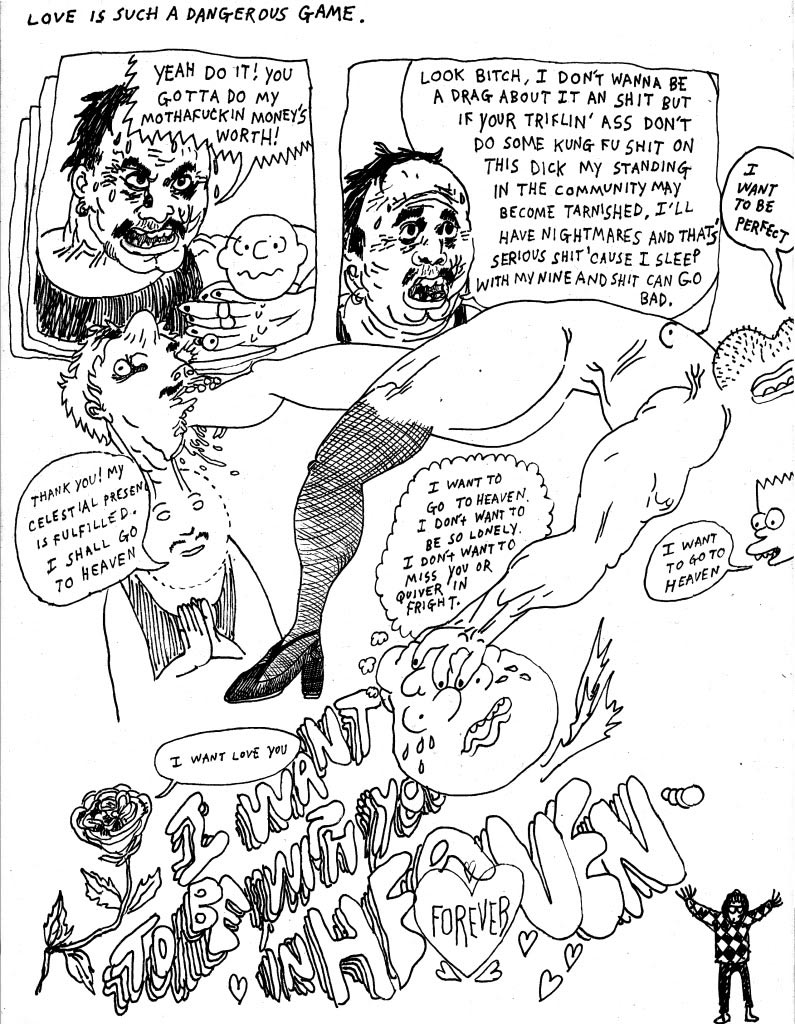 LOVE IS SUCH A DANGEROUS GAME.
YEAH DO IT! YOU
GOTTA DO MY
MOTHAFUCKIN MONEY'S
WORTH!
LOOK BITCH, I DON'T WANNA BE
A DRAG ABOUT IT AN SHIT BUT
IF YOUR TRIFLIN' ASS DON'T
DO SOME KUNG FU SHIT ON
THIS DICK MY STANDING
IN THE COMMUNITY MAY
BECOME TARNISHED, I'LL
HAVE NIGHTMARES AND THAT'S
SERIOUS SHIT 'CAUSE I SLEEP
WITH MY NINE AND SHIT CAN GO
BAD.
I
WANT
TO BE
PERFECT
THANK YOU! MY
CELESTIAL PRESENC
IS FULFILLED.
I SHALL GO
TO HEAVEN
I WANT TO
GO TO HEAVEN.
I DON'T WANT TO
BE SO LONELY.
I DON'T WANT TO
MISS YOU OR
QUIVER IN
FRIGHT.
I WANT
TO GO TO
HEAVEN
I WANT LOVE YOU
I WANT
TO BE WITH YOU
IN HEAVEN
FOREVER